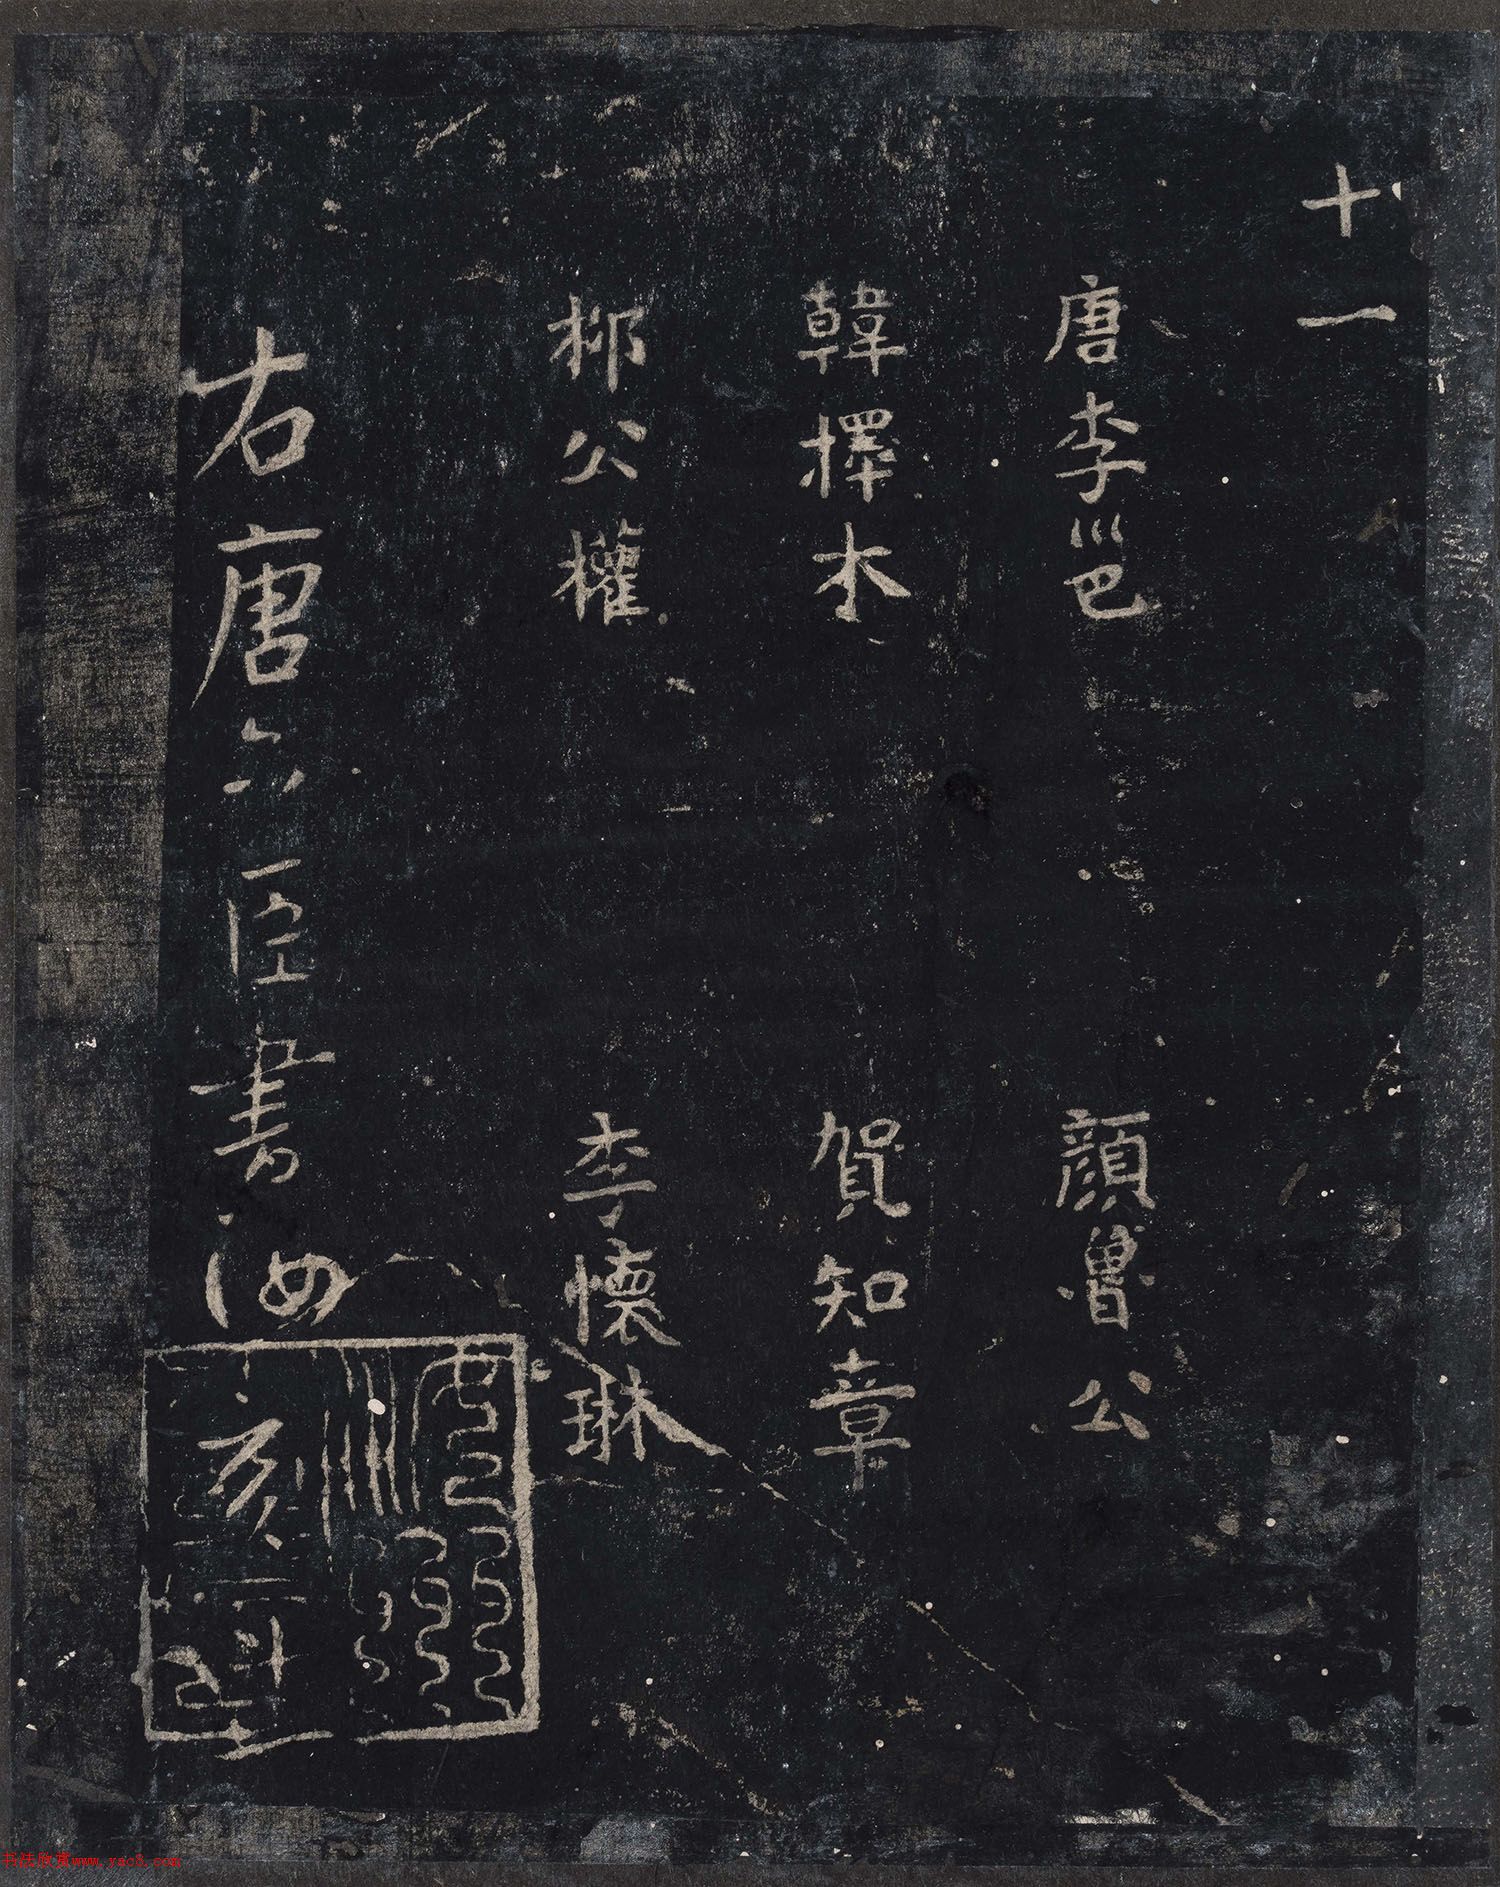 十一
唐李邕 顏魯公
韓擇木 賀知章
柳公權 李懷琳
右唐六臣書汝
书法欣赏www.yac8.com